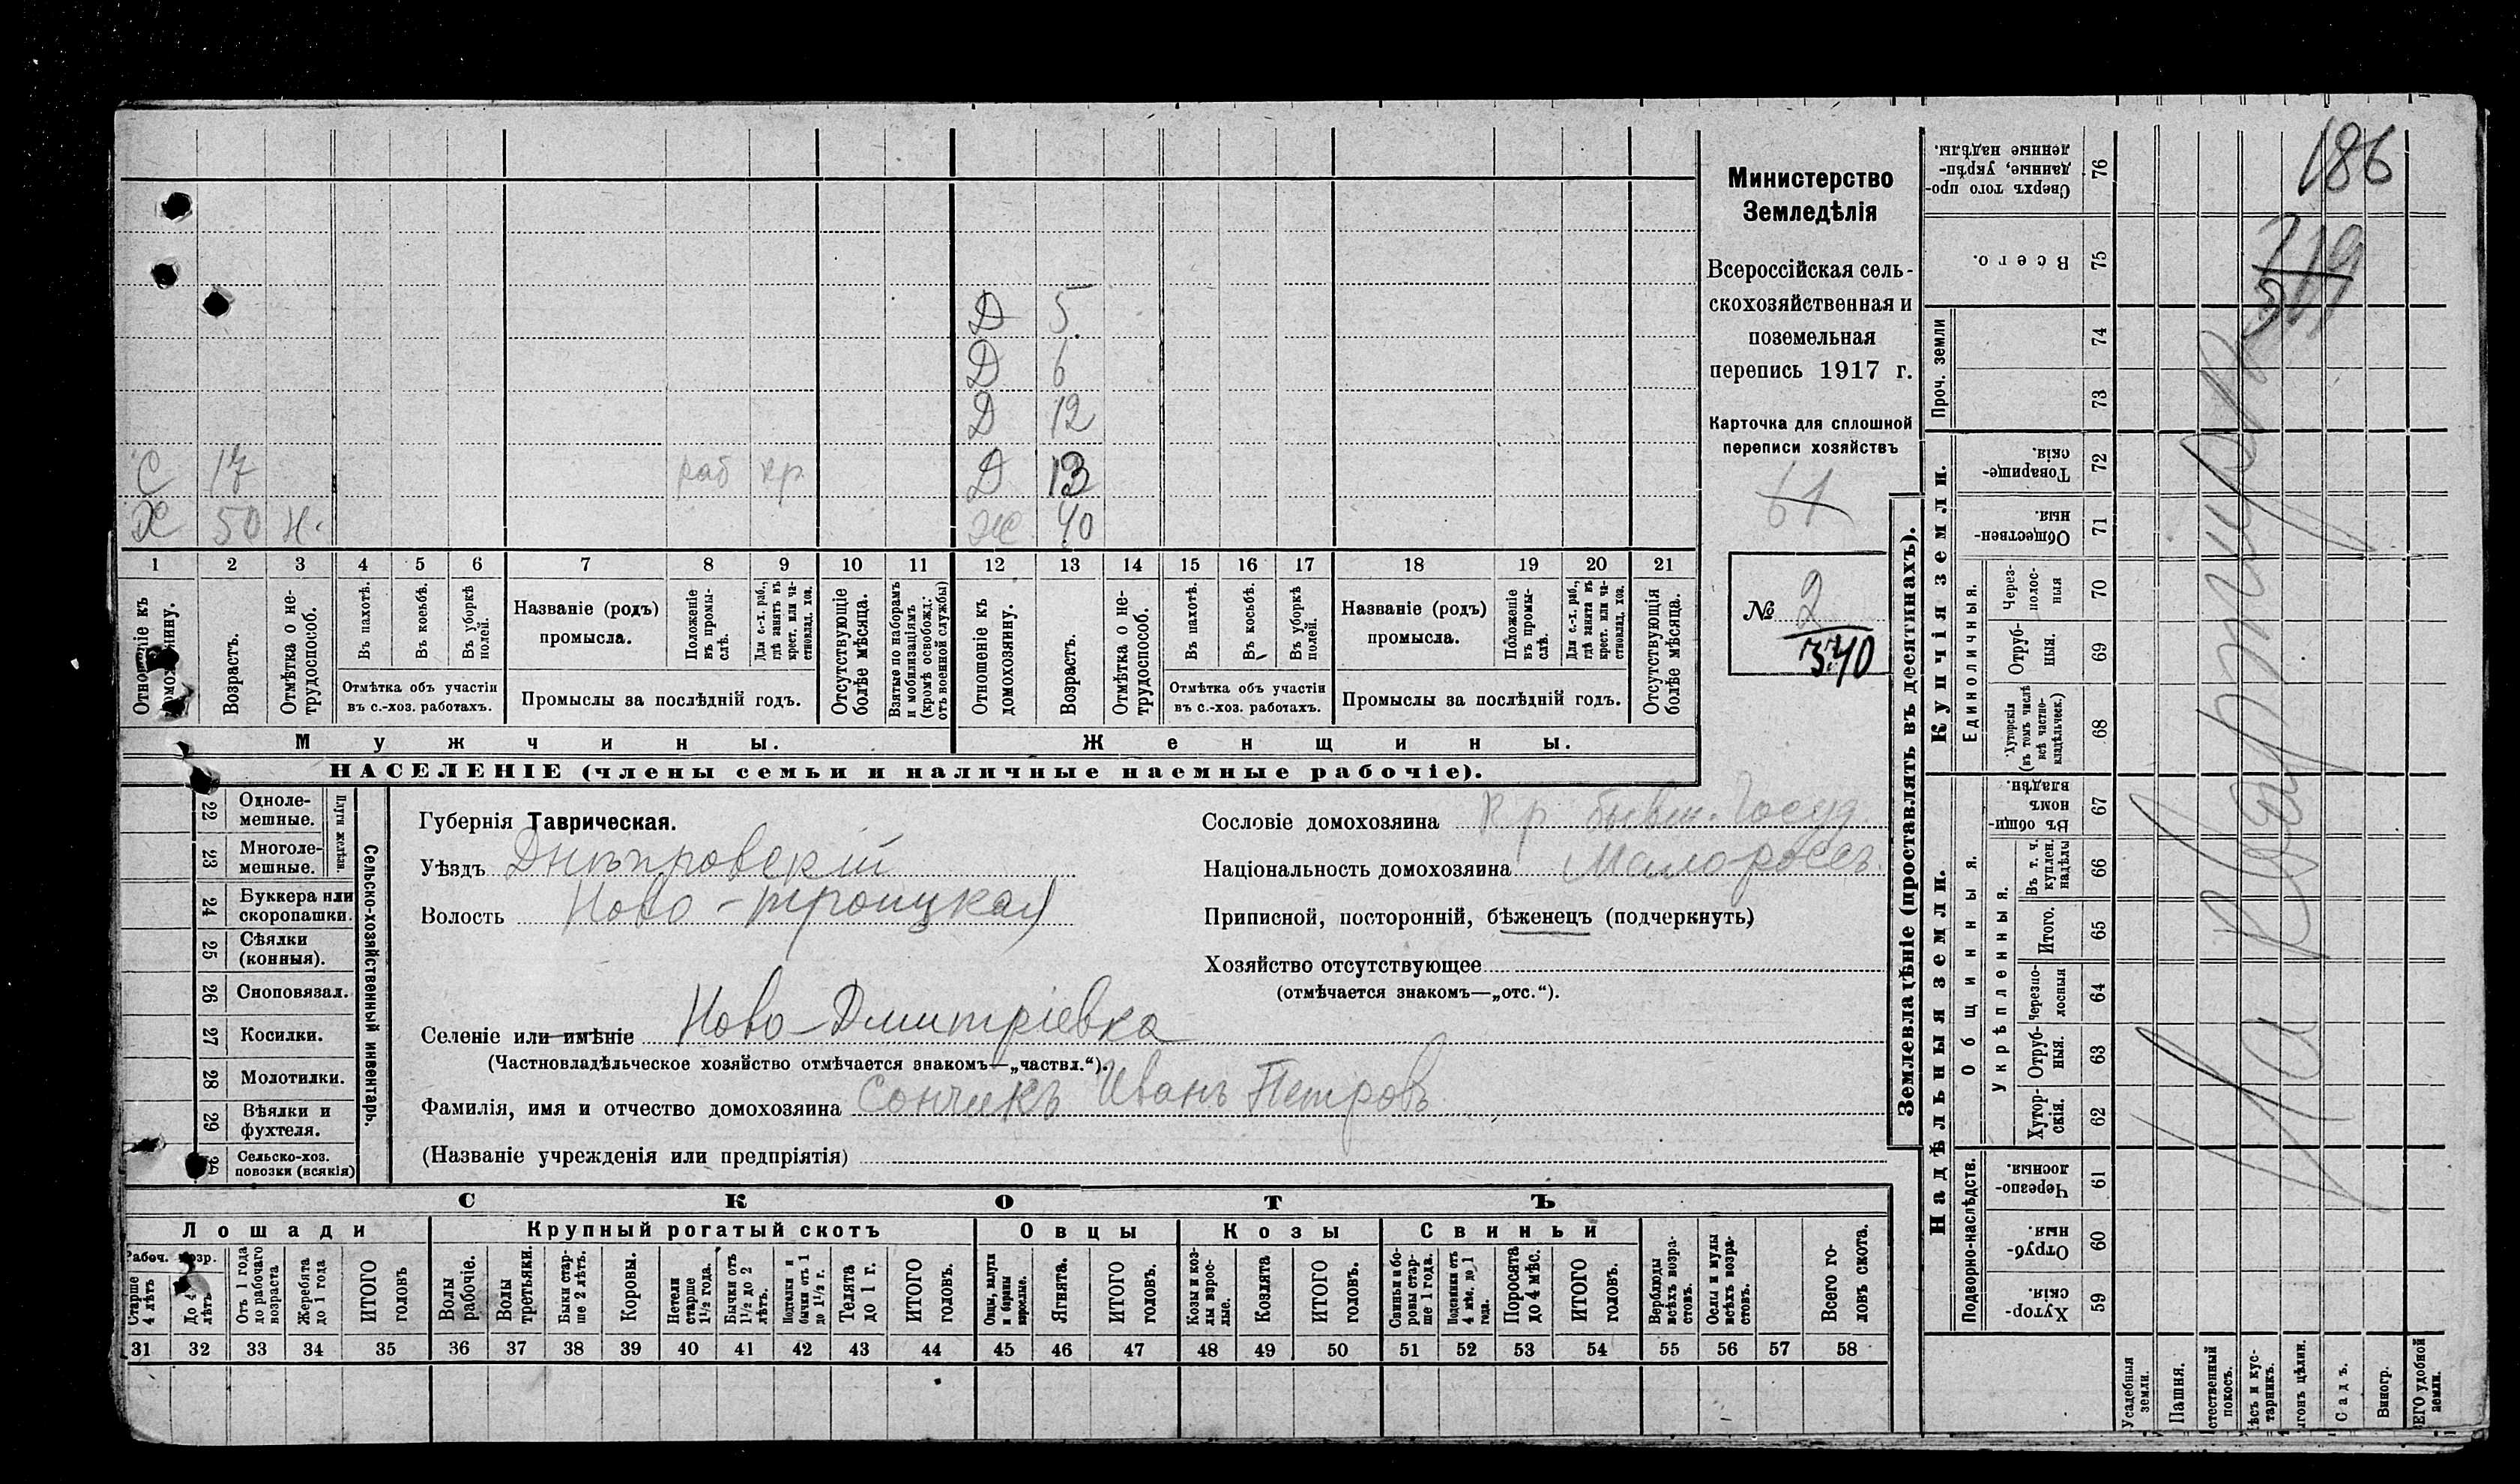 Министерство
Земледѣлія
Всероссійская сель-
скохозяйственная и
поземельная
перепись 1917 г.
Карточка для сплошной
переписи хозяйствъ
61
№ 2
340
186
319
Д 5
Д 6
Д 12
С 17 раб кр. Д 13
Х 50 н. Ж 40
1 2 3 4 5 6 7 8 9 10 11 12 13 14 15 16 17 18 19 20 21
Отношеніе къ домохозяину.
Возрастъ.
Отмѣтка о не-
трудоспособ.
Въ пахотѣ.
Въ косьбѣ.
Въ уборкѣ
полей.
Отмѣтка объ участіи
въ с.-хоз. работахъ.
Названіе (родъ)
промысла.
Положеніе
въ промы-
слѣ.
Для с.-х. раб.,
гдѣ занятъ въ
крест. или ча-
стновлад. хоз.
Промыслы за послѣдній годъ.
Отсутствующіе
болѣе мѣсяца.
Взятые по наборамъ
и мобилизаціямъ
(кромѣ освобожд.
отъ военной службы)
Отношеніе къ
домохозяину.
Возрастъ.
Отмѣтка о не-
трудоспособ.
Въ пахотѣ.
Въ косьбѣ.
Въ уборкѣ
полей.
Отмѣтка объ участіи
въ с.-хоз. работахъ.
Названіе (родъ)
промысла.
Положеніе
въ промы-
слѣ.
Для с.-х. раб.,
гдѣ занята въ
крест. или ча-
стновлад. хоз.
Промыслы за послѣдній годъ.
Отсутствующія
болѣе мѣсяца.
Мужчины. Женщины.
НАСЕЛЕНІЕ (члены семьи и наличные наемные рабочіе).
22 Одноле-
мешные.
23 Многоле-
мешные.
Плуги желѣзн.
24 Буккера или
скоропашки.
25 Сѣялки
(конныя).
26 Сноповязал.
27 Косилки.
28 Молотилки.
29 Вѣялки и
фухтеля.
Сельско-хоз.
повозки (всякія)
Сельско-хозяйственный инвентарь.
Губернія Таврическая.
Уѣздъ Днѣпровскій
Волость Ново-троицкая
Селеніе или имѣніе Ново-Дмитріевка
(Частновладѣльческое хозяйство отмѣчается знакомъ—„частвл.“).
Фамилія, имя и отчество домохозяина Сончикъ Иванъ Петровъ
(Названіе учрежденія или предпріятія)
Сословіе домохозяина кр. бывш. Госуд.
Національность домохозяина Малороссъ
Приписной, посторонній, бѣженецъ (подчеркнуть)
Хозяйство отсутствующее
(отмѣчается знакомъ—„отс.“).
СКОТЪ
Лошади Крупный рогатый скотъ Овцы Козы Свиньи
Рабоч. возр.
Старше
4 лѣтъ
До 4
лѣтъ
Отъ 1 года
до рабочаго
возраста
Жеребята
до 1 года
ИТОГО
головъ
Волы
рабочіе.
Волы
третьяки.
Быки стар-
ше 2 лѣтъ.
Коровы.
Нетели
старше
1½ года.
Бычки отъ
1½ до 2
лѣтъ.
Подтелки и
бычки отъ 1
до 1½ г.
Телята
до 1 г.
ИТОГО
головъ.
Овцы, валухи
и бараны
взрослые.
Ягнята.
ИТОГО
головъ.
Козы и коз-
лы взрос-
лые.
Козлята
ИТОГО
головъ.
Свиньи и бо-
ровы стар-
ше 1 года.
Подсвинки отъ
4 мѣс. до 1
года.
Поросята
до 4 мѣс.
ИТОГО
головъ.
Верблюды
всѣхъ возра-
стовъ.
Ослы и мулы
всѣхъ возра-
стовъ.
Всего го-
ловъ скота.
31 32 33 34 35 36 37 38 39 40 41 42 43 44 45 46 47 48 49 50 51 52 53 54 55 56 57 58
Землевладѣніе (проставлять въ десятинахъ).
Надѣльныя земли. Купчія земли. Проч. земли
Подворно-наслѣдств.
Общинныя.
Укрѣпленныя.
Единоличныя.
Хутор-
скія. 59
Отруб-
ныя. 60
Черезпо-
лосныя. 61
Хутор-
скія. 62
Отруб-
ныя. 63
Черезпо-
лосныя 64
Итого. 65
Въ т. ч.
куплен.
надѣлы 66
Въ общин-
номъ
владѣн. 67
Хуторскія
(въ томъ числѣ
всѣ частно-
владѣльческ.) 68
Отруб-
ныя. 69
Через-
полос-
ныя 70
Обществен-
ныя. 71
Товарище-
скія. 72
73
74
Всего. 75
Сверхъ того про-
данные, укрѣп-
ленные надѣлы. 76
Усадебныя
земли.
Пашня.
стественный
покосъ.
ѣсъ и кус-
тарникъ.
гонъ цѣлин.
Садъ.
Виногр.
ЕГО удобной
земли.
На квартирѣ